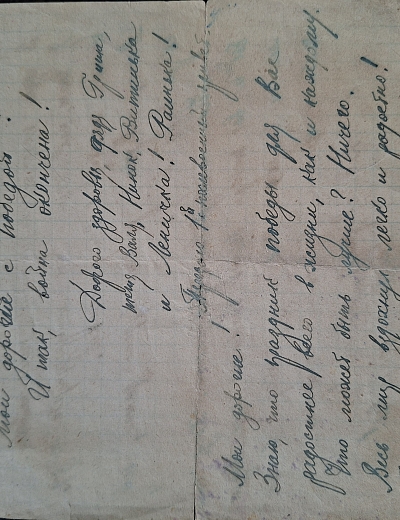 Мои дорогие с победой!
И так, война окончена!
Доброго здоровья, дядя Гриша,
тетя Валя, Нинок, Витилька
и Леничка! Раичка!
Мои дорогие!
Знаю, что праздник победы для Вас
радостнее всего в жизни, как и каждому.
Что может быть лучше? Ничего.
Весь мир вздохнул легко и радостно!